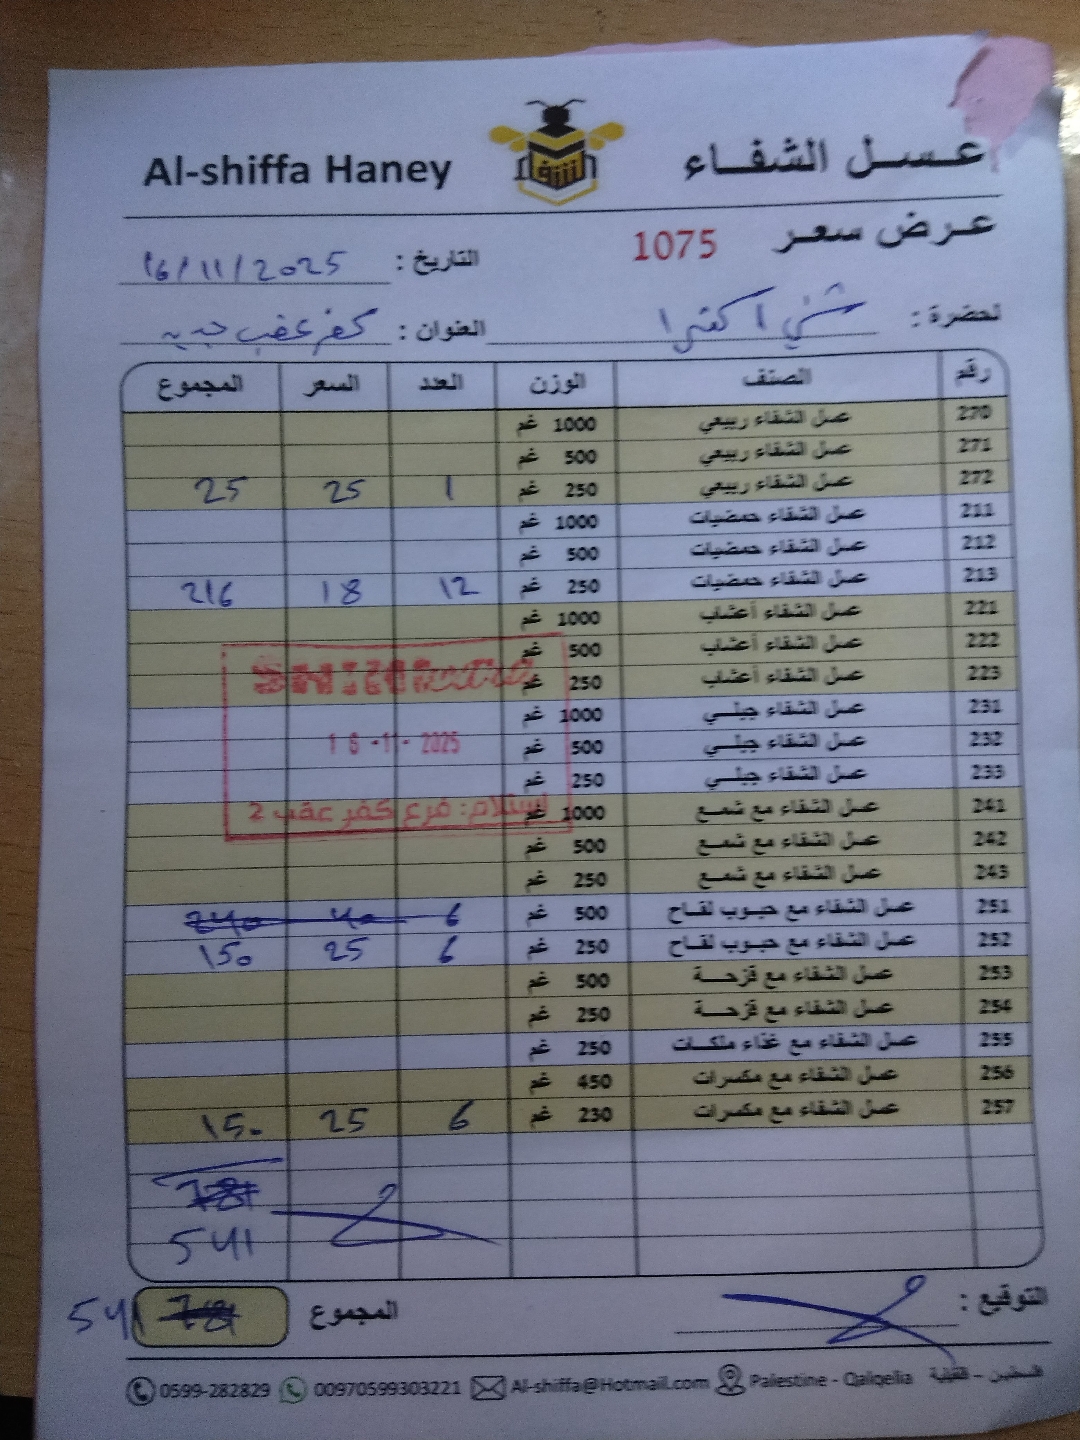 Al-shiffa Haney
عسل الشفاء
عرض سعر 1075
التاريخ : 16/11/2025
لحضرة :
العنوان : كفر عقب
رقم الصنف الوزن العدد السعر المجموع
270 عسل الشفاء ربيعي 1000 غم
271 عسل الشفاء ربيعي 500 غم
272 عسل الشفاء ربيعي 250 غم 1 25 25
211 عسل الشفاء حمضيات 1000 غم
212 عسل الشفاء حمضيات 500 غم
213 عسل الشفاء حمضيات 250 غم 12 18 216
221 عسل الشفاء أعشاب 1000 غم
222 عسل الشفاء أعشاب 500 غم
223 عسل الشفاء أعشاب 250 غم
231 عسل الشفاء جبلي 1000 غم
232 عسل الشفاء جبلي 500 غم
233 عسل الشفاء جبلي 250 غم
241 عسل الشفاء مع شمع 1000 غم
242 عسل الشفاء مع شمع 500 غم
243 عسل الشفاء مع شمع 250 غم
251 عسل الشفاء مع حبوب لقاح 500 غم 6 40 240
252 عسل الشفاء مع حبوب لقاح 250 غم 6 25 150
253 عسل الشفاء مع قزحة 500 غم
254 عسل الشفاء مع قزحة 250 غم
255 عسل الشفاء مع غذاء ملكات 250 غم
256 عسل الشفاء مع مكسرات 450 غم
257 عسل الشفاء مع مكسرات 230 غم 6 25 150
781
541
16 -11- 2025
إستلام: فرع كفر عقب 2
المجموع 781 541
التوقيع :
0599-282829 00970599303221 Al-shiffa@Hotmail.com Palestine - Qalqelia فلسطين - قلقيلية